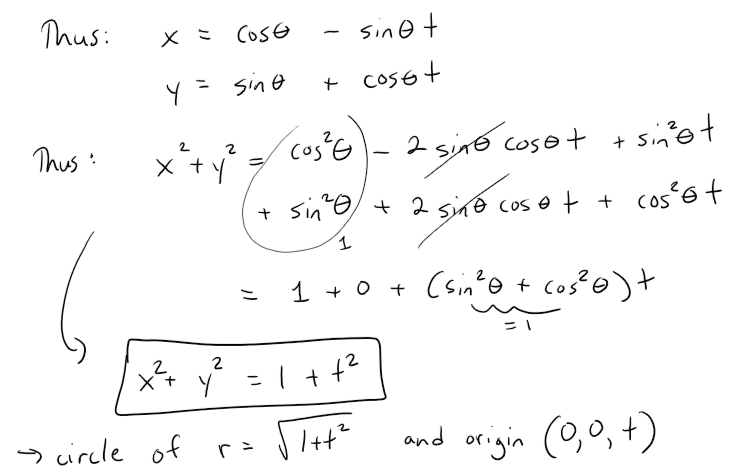 Thus: x = cosθ - sinθ t
y = sinθ + cosθ t
Thus: x² + y² = cos²θ - 2 sinθ cosθ t + sin²θ t
+ sin²θ + 2 sinθ cosθ t + cos²θ t
1
= 1 + 0 + (sin²θ + cos²θ) t
= 1
x² + y² = 1 + t²
→ circle of r = √1+t² and origin (0,0,t)